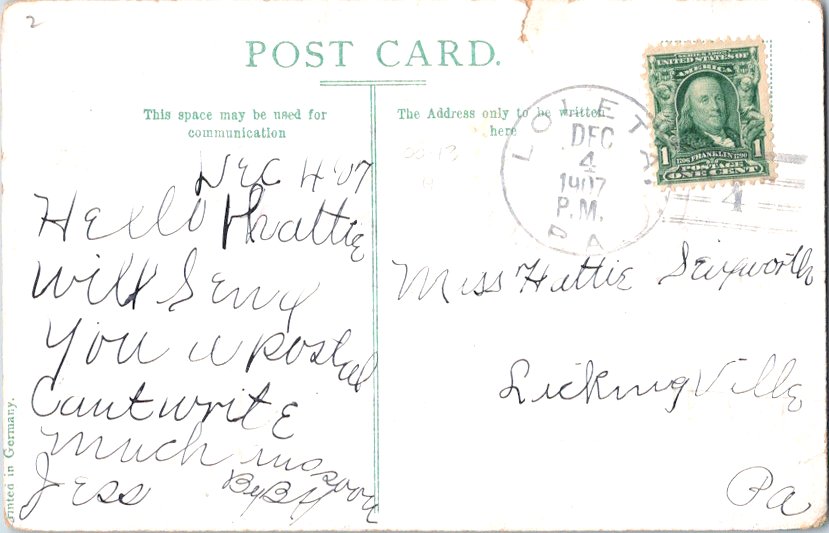 2
POST CARD.
This space may be used for
communication
Dec 4 '07
Hello Hattie
Will Send
You a postal
Cant write
much
Jess
By By
Printed in Germany.
The Address only to be written
here
LOLETA.
DEC
4
1907
P.M.
PA
SERIES 1902
UNITED STATES OF
AMERICA
1706 FRANKLIN 1790
1 POSTAGE 1
ONE CENT
4
Miss Hattie
Licking Ville
Pa